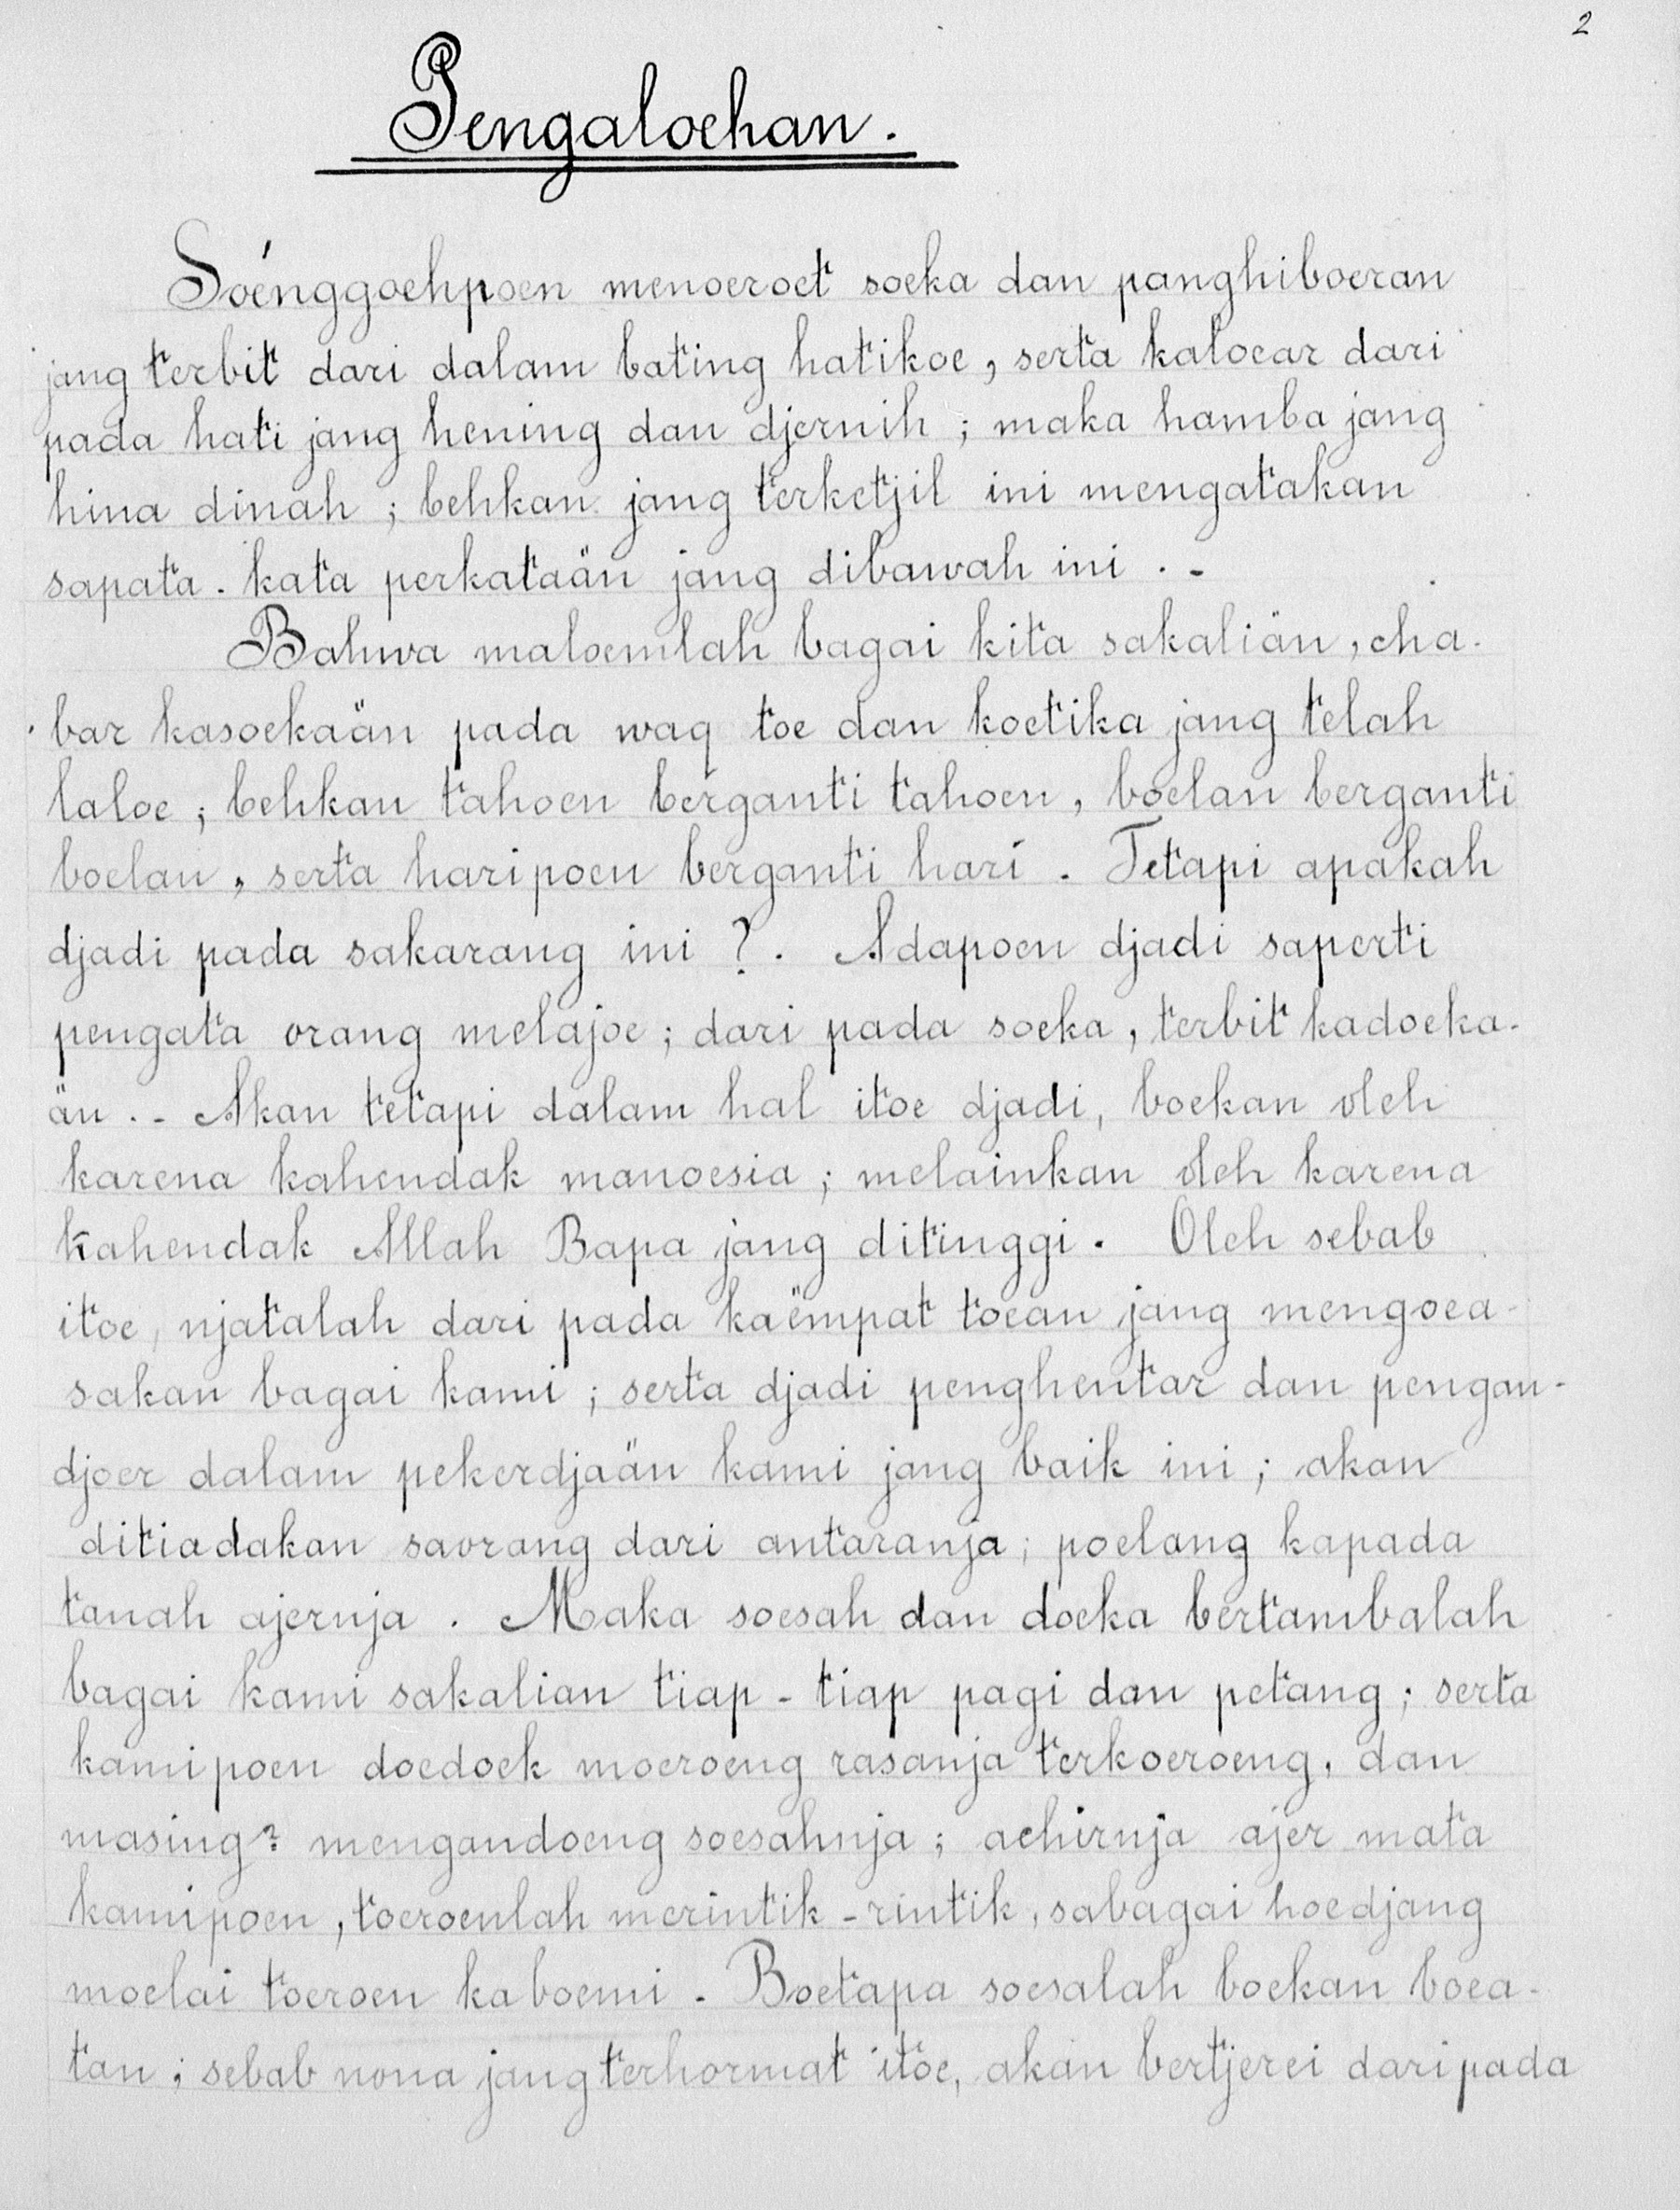 2
Pengaloehan.
Soénggoehpoen menoeroet soeka dan panghiboeran
jang terbit dari dalam bating hatikoe, serta kaloear dari
pada hati jang hening dan djernih; maka hamba jang
hina dinah; behkan jang terketjil ini mengatakan
sapata-kata perkataän jang dibawah ini.-
Bahwa maloemlah bagai kita sakaliän, cha-
bar kasoekaän pada waq toe dan koetika jang telah
laloe; behkan tahoen berganti tahoen, boelan berganti
boelan, serta haripoen berganti hari. Tetapi apakah
djadi pada sakarang ini?. Adapoen djadi saperti
pengata orang melajoe; dari pada soeka, terbit kadoeka-
än.- Akan tetapi dalam hal itoe djadi, boekan oleh
karena kahendak manoesia; melainkan oleh karena
kahendak Allah Bapa jang ditinggi. Oleh sebab
itoe, njatalah dari pada kaëmpat toean jang mengoea-
sakan bagai kami; serta djadi penghentar dan pengan-
djoer dalam pekerdjaän kami jang baik ini; akan
ditiadakan saorang dari antaranja; poelang kapada
tanah ajernja. Maka soesah dan doeka bertambalah
bagai kami sakalian tiap-tiap pagi dan petang; serta
kamipoen doedoek moeroeng rasanja terkoeroeng, dan
masing2 mengandoeng soesahnja; achirnja ajer mata
kamipoen, toeroenlah merintik-rintik, sabagai hoedjang
moelai toeroen kaboemi. Boetapa soesalah boekan boea-
tan; sebab nona jang terhormat itoe, akan bertjerei daripada